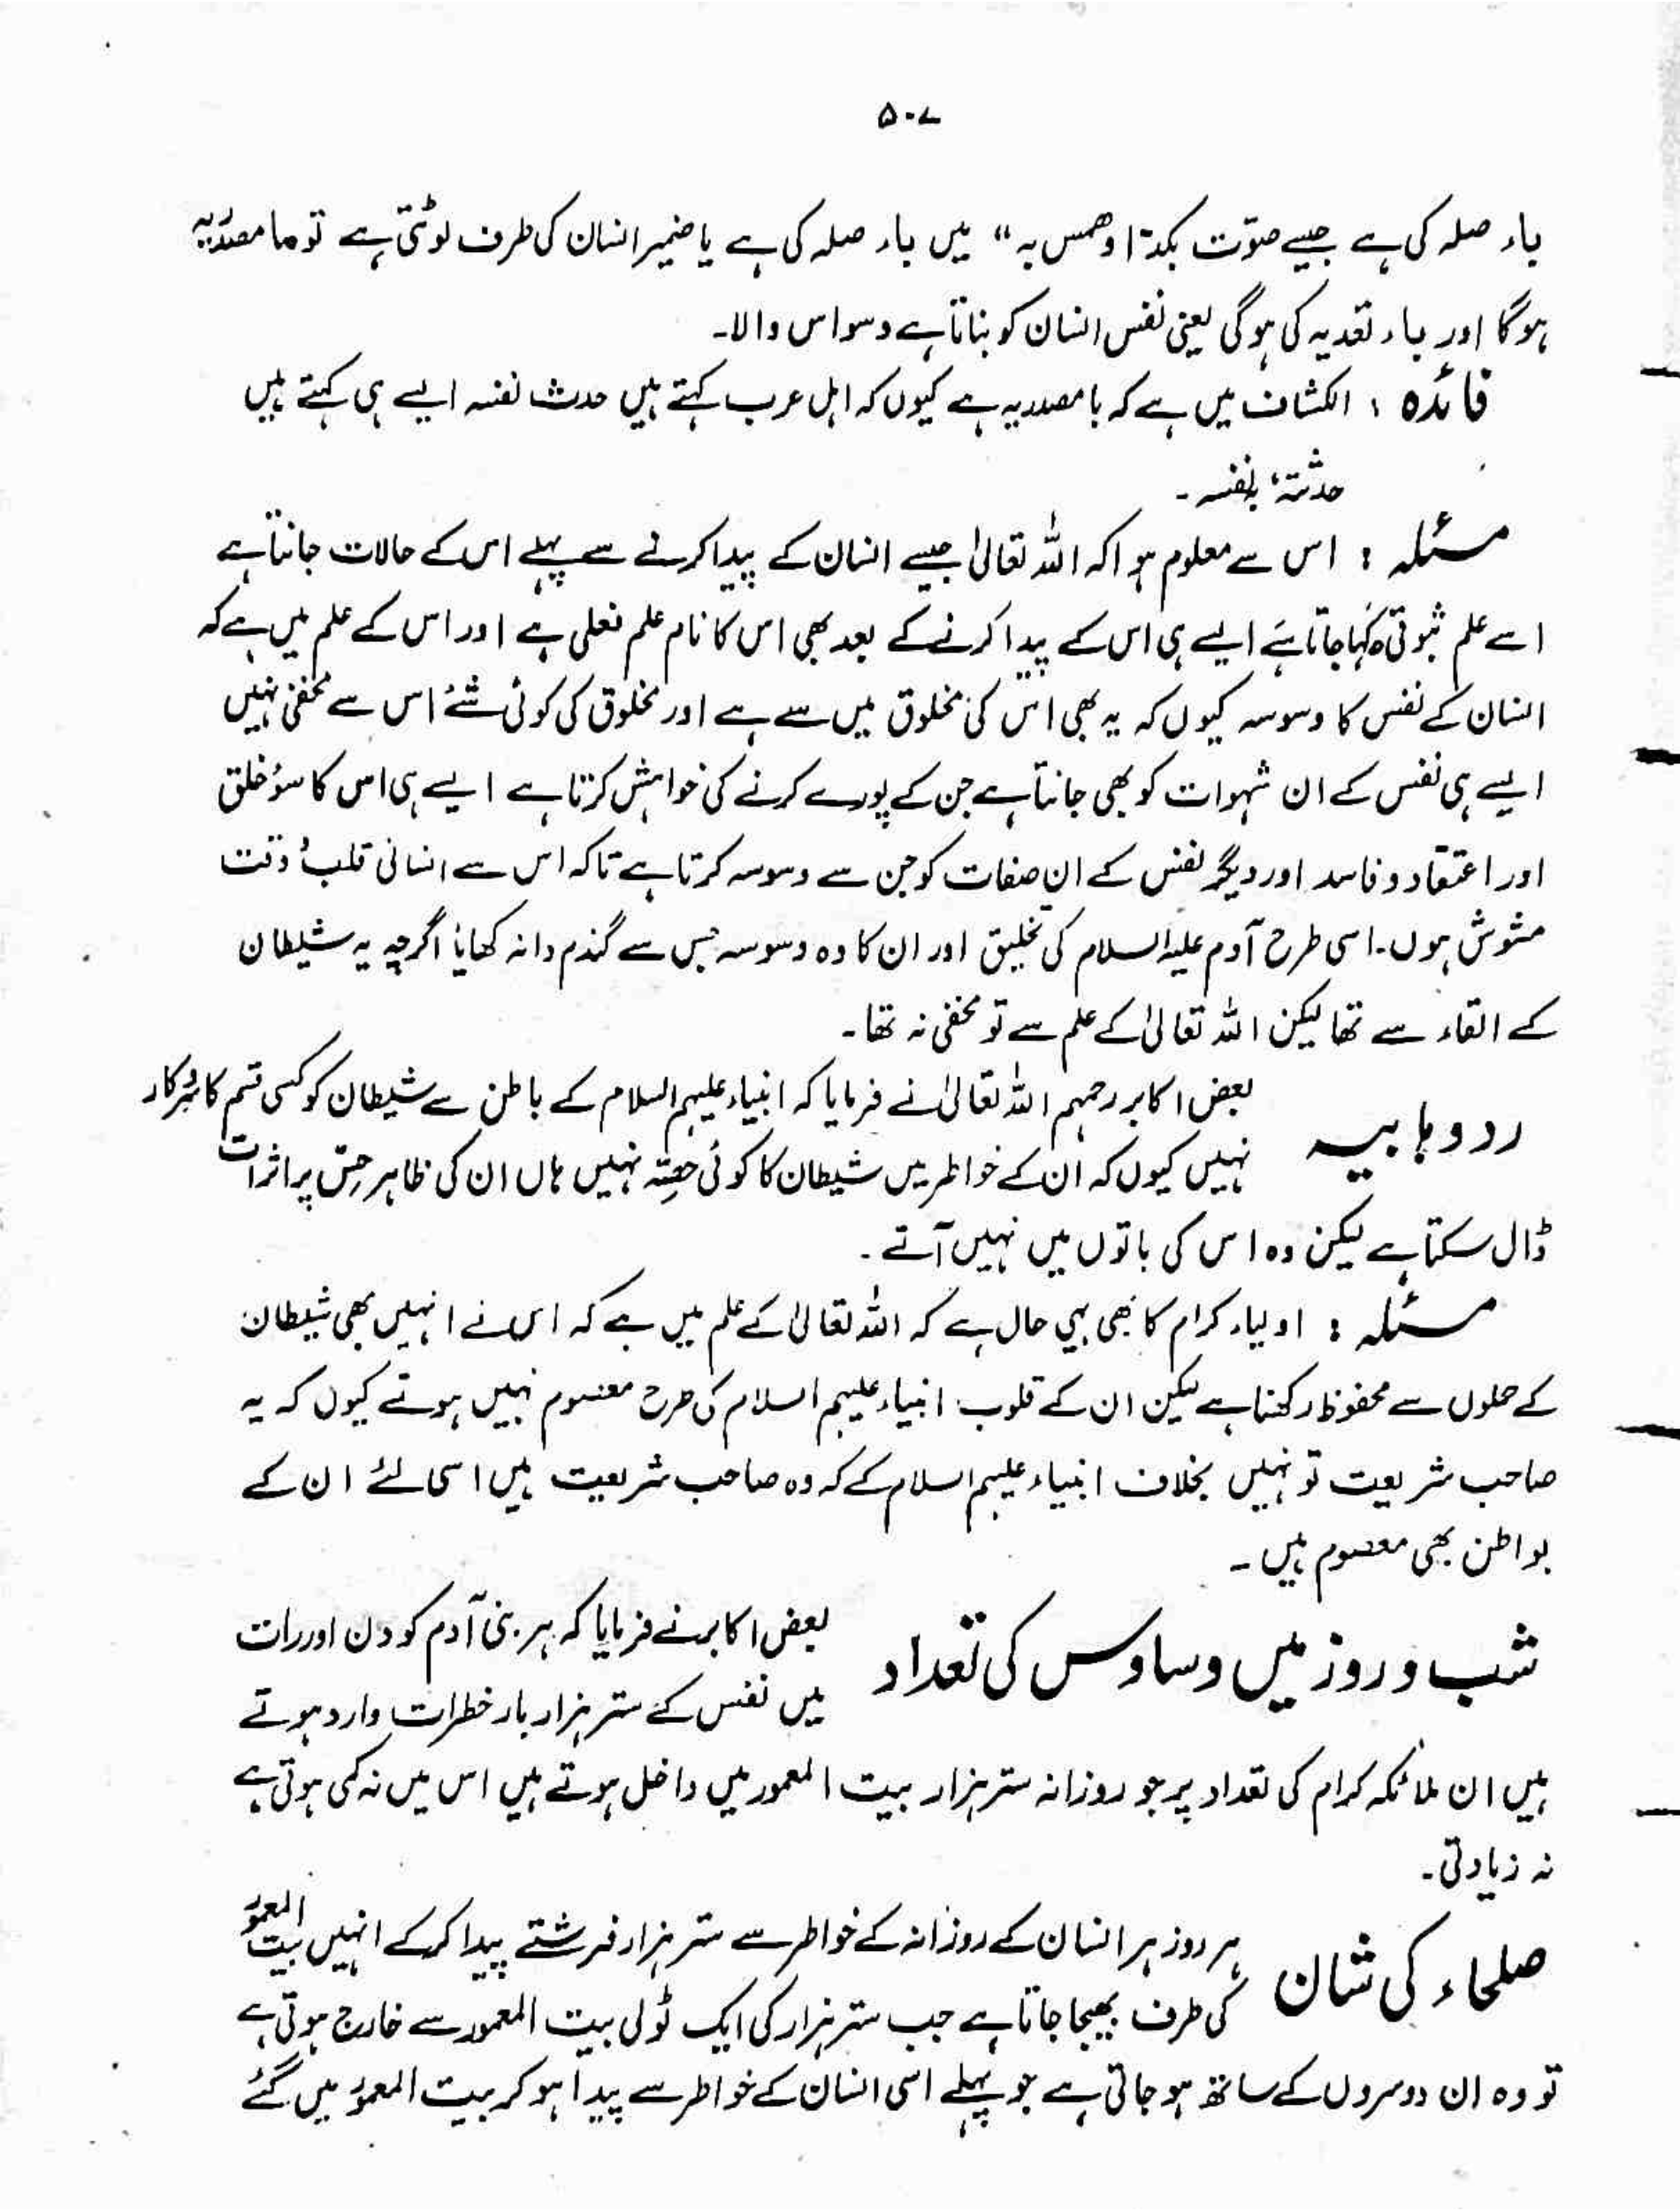 ۵۰۷
باء صلہ کی ہے جیسے صوّت بکذا وھمس بہ" میں باء صلہ کی ہے یا ضمیر انسان کی طرف لوٹتی ہے تو ما مصدریہ
ہوگا اور باء تعدیہ کی ہوگی یعنی نفس انسان کو بناتا ہے وسواس والا۔
فائدہ : الکشاف میں ہے کہ با مصدریہ ہے کیوں کہ اہل عرب کہتے ہیں حدث نفسہ ایسے ہی کہتے ہیں
حدثتہ، بنفسہ ۔
مسئلہ : اس سے معلوم ہوا کہ اللہ تعالیٰ جیسے انسان کے پیدا کرنے سے پہلے اس کے حالات جانتا ہے
اسے علم ثبوتی کہا جاتا ہے ایسے ہی اس کے پیدا کرنے کے بعد بھی اس کا نام علم فعلی ہے اور اس کے علم میں ہے کہ
انسان کے نفس کا وسوسہ کیوں کہ یہ بھی اس کی مخلوق میں سے ہے اور مخلوق کی کوئی شئے اس سے مخفی نہیں
ایسے ہی نفس کے ان شہوات کو بھی جانتا ہے جن کے پورے کرنے کی خواہش کرتا ہے ایسے ہی اس کا سوءُ خلق
اور اعتقاد و فاسد اور دیگر نفس کے ان صفات کو جن سے وسوسہ کرتا ہے تاکہ اس سے انسانی قلب و وقت
مشوش ہوں۔ اسی طرح آدم علیہ السلام کی تخلیق اور ان کا وہ وسوسہ جس سے گندم دانہ کھایا اگرچہ یہ شیطان
کے القاء سے تھا لیکن اللہ تعالیٰ کے علم سے تو مخفی نہ تھا ۔
رد وہابیہ بعض اکابر رحمہم اللہ تعالیٰ نے فرمایا کہ انبیاء علیہم السلام کے باطن سے شیطان کو کسی قسم کا سروکار
نہیں کیوں کہ ان کے خواطر میں شیطان کا کوئی حصّہ نہیں ہاں ان کی ظاہر حِسّ پر اثرات
ڈال سکتا ہے لیکن وہ اس کی باتوں میں نہیں آتے ۔
مسئلہ : اولیاء کرام کا بھی یہی حال ہے کہ اللہ تعالیٰ کے علم میں ہے کہ اس نے انہیں بھی شیطان
کے حملوں سے محفوظ رکھتا ہے لیکن ان کے قلوب انبیاء علیہم السلام کی طرح معصوم نہیں ہوتے کیوں کہ یہ
صاحب شریعت تو نہیں بخلاف انبیاء علیہم السلام کے کہ وہ صاحب شریعت ہیں اسی لئے ان کے
بواطن بھی معصوم ہیں ۔
شب و روز میں وساوس کی تعداد بعض اکابر نے فرمایا کہ ہر بنی آدم کو دن اور رات
میں نفس کے ستر ہزار بار خطرات وارد ہوتے
ہیں ان ملائکہ کرام کی تعداد پر جو روزانہ ستر ہزار بیت المعمور میں داخل ہوتے ہیں اس میں نہ کمی ہوتی ہے
نہ زیادتی۔
صلحاء کی شان ہر روز ہر انسان کے روزانہ کے خواطر سے ستر ہزار فرشتے پیدا کر کے انہیں بیت المعمور
کی طرف بھیجا جاتا ہے جب ستر ہزار کی ایک ٹولی بیت المعمور سے خارج ہوتی ہے
تو وہ ان دوسروں کے ساتھ ہو جاتی ہے جو پہلے اسی انسان کے خواطر سے پیدا ہو کر بیت المعمور میں گئے